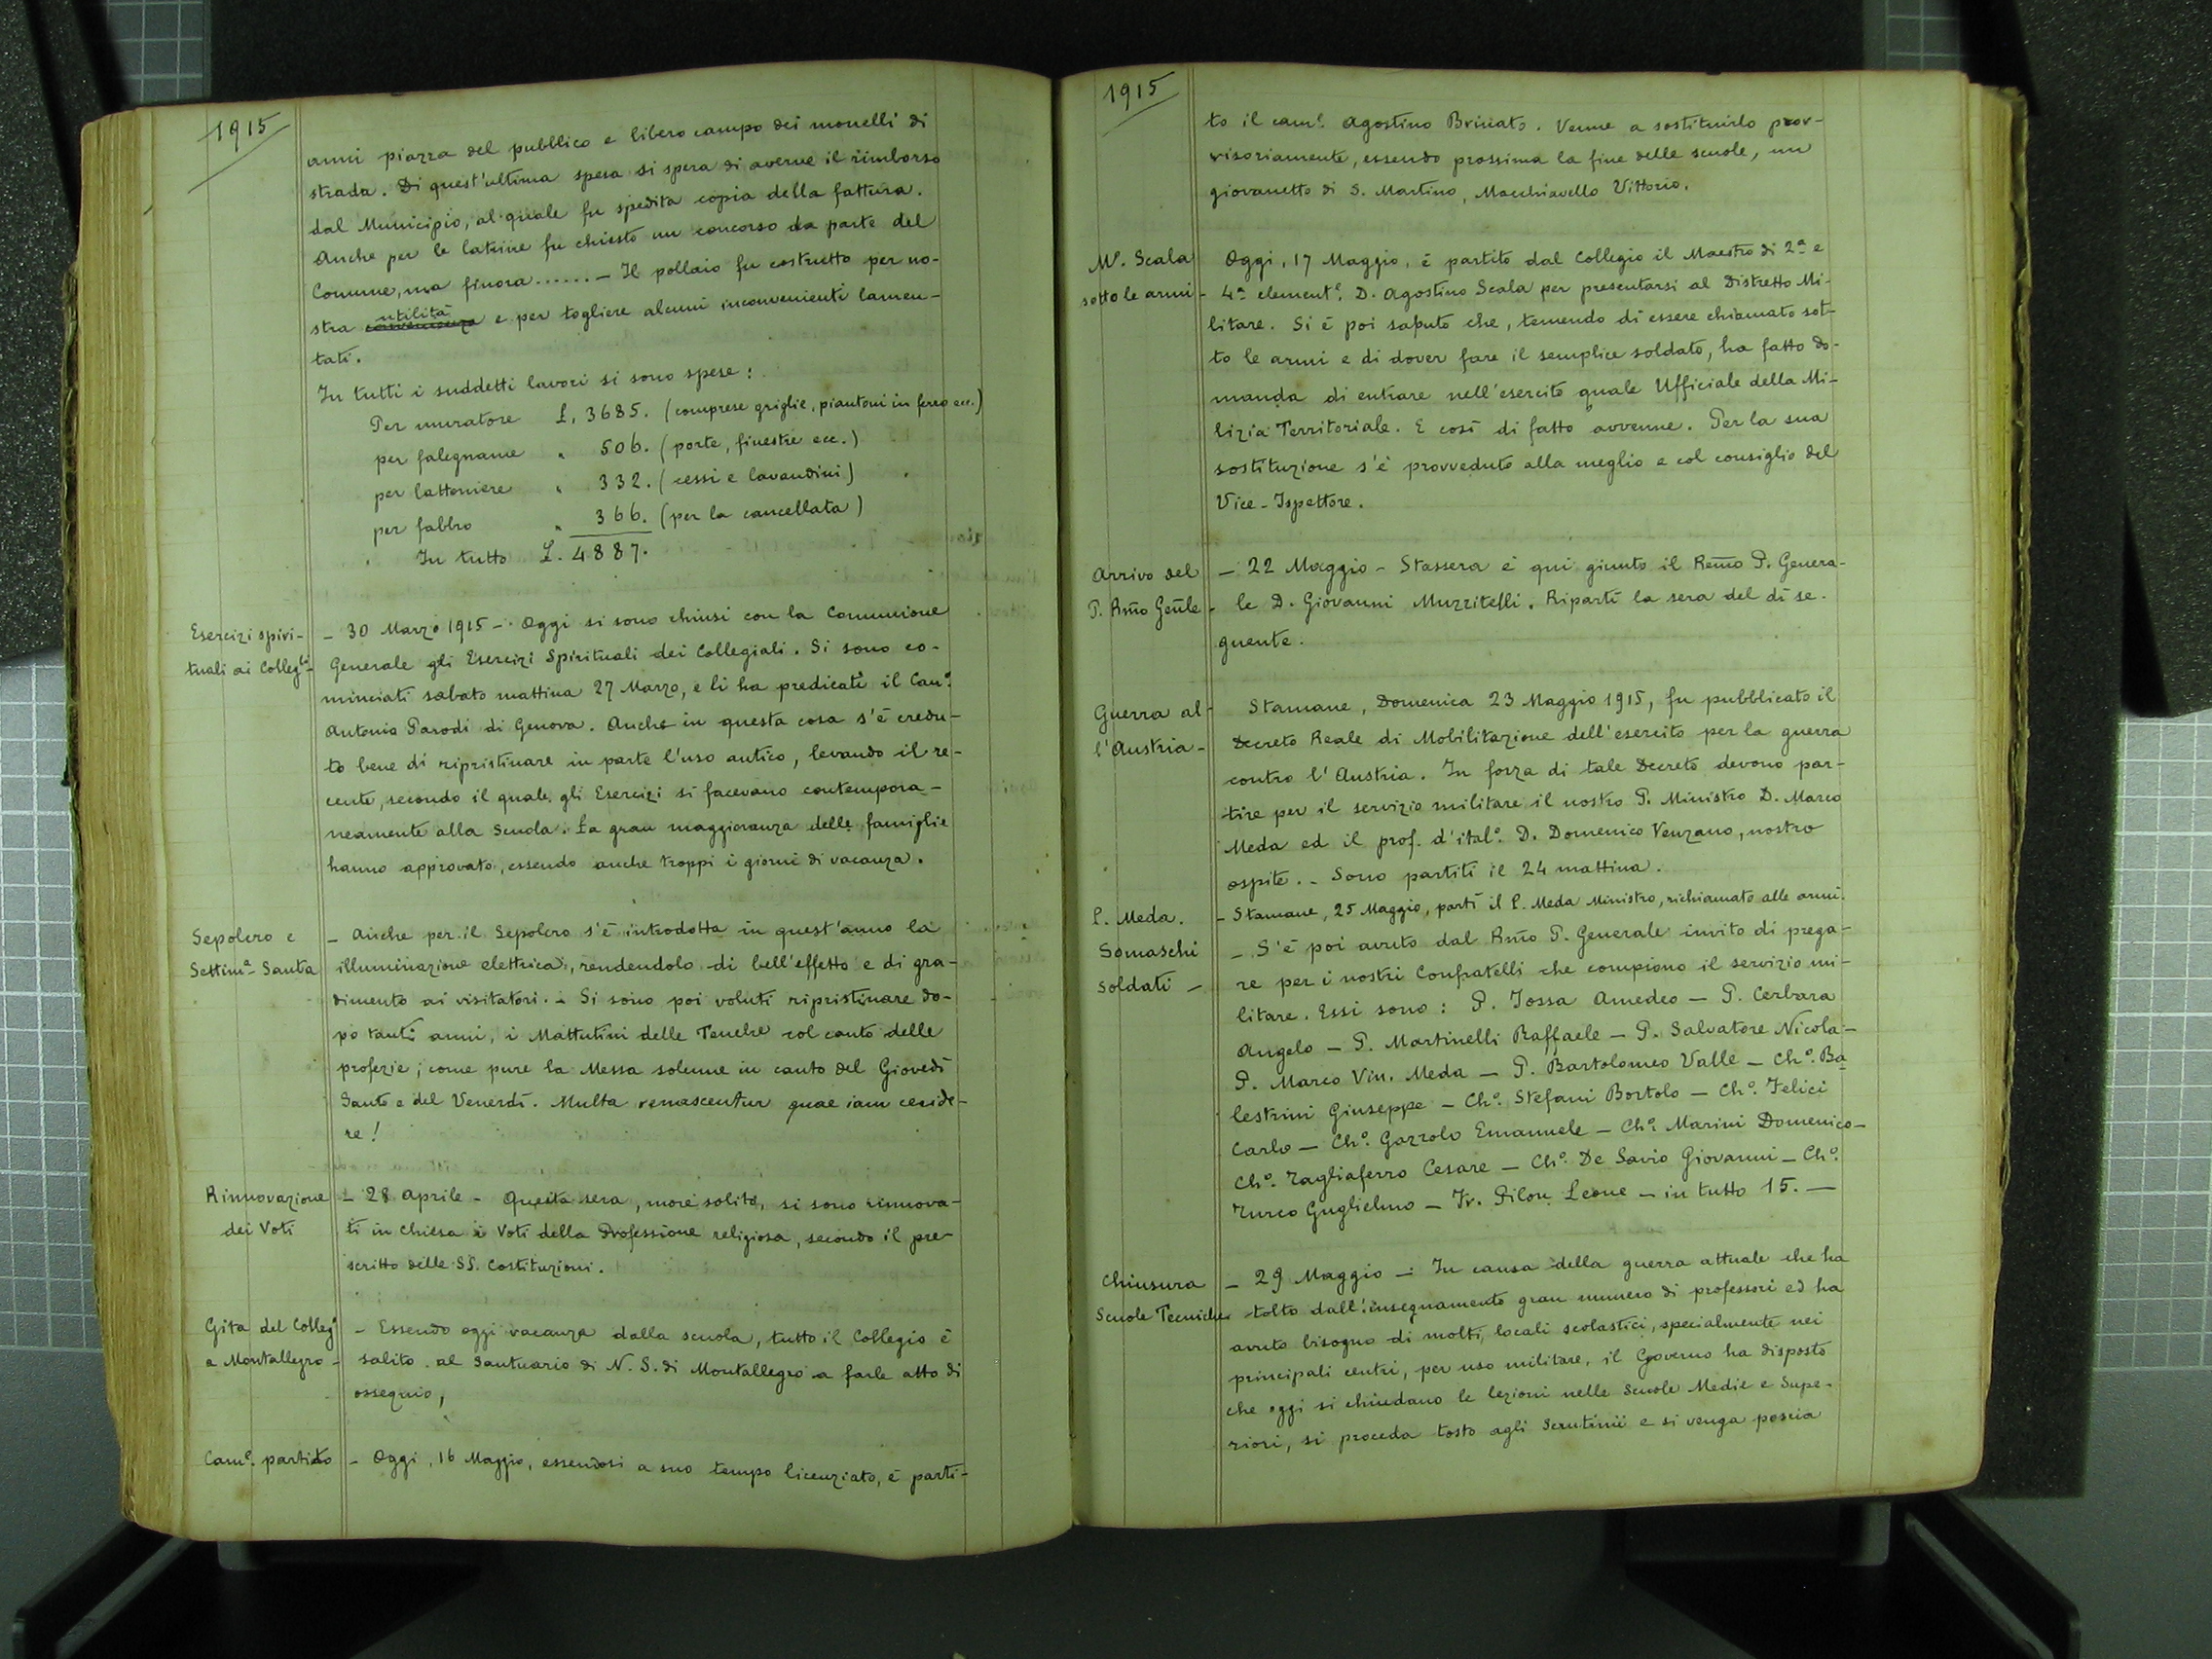 1915
anni piazza del pubblico e libero campo dei monelli di
strada. Di quest'ultima spesa si spera di averne il rimborso
dal Municipio, al quale fu spedita copia della fattura.
Anche per le latrine fu chiesto un concorso da parte del
Comune, ma finora ...... — Il pollaio fu costrutto per no-
utilità
stra convenienza e per togliere alcuni inconvenienti lamen-
tati.
In tutti i suddetti lavori si sono spese:
Per muratore L. 3685. (comprese griglie, piantoni in ferro ecc.)
per falegname " 506. (porte, finestre ecc.)
per lattoniere " 332. (cessi e lavandini)
per fabbro " 366. (per la cancellata)
In tutto L. 4887.
Esercizi spiri- — 30 Marzo 1915 — Oggi si sono chiusi con la Comunione
tuali ai Colleg.li - Generale gli Esercizi Spirituali dei Collegiali. Si sono co-
minciati sabato mattina 27 Marzo, e li ha predicati il Can.º
Antonio Parodi di Genova. Anche in questa cosa s'è credu-
to bene di ripristinare in parte l'uso antico, levando il re-
cente, secondo il quale gli Esercizi si facevano contempora-
neamente alla scuola. La gran maggioranza delle famiglie
hanno approvato, essendo anche troppi i giorni di vacanza.
Sepolcro e — Anche per il Sepolcro s'è introdotta in quest'anno la
Settim.ª Santa illuminazione elettrica, rendendolo di bell'effetto e di gra-
dimento ai visitatori. — Si sono poi voluti ripristinare do-
po tanti anni, i Mattutini delle Tenebre col canto delle
profezie; come pure la Messa solenne in canto del Giovedì
Santo e del Venerdì. Multa renascentur quae iam cecide-
re!
Rinnovazione — 28 Aprile — Questa sera, more solito, si sono rinnova-
dei Voti ti in Chiesa i Voti della Professione religiosa, secondo il pre-
scritto delle SS. Costituzioni.
Gita del Colleg.º — Essendo oggi vacanza dalla scuola, tutto il Collegio è
a Montallegro - salito al Santuario di N. S. di Montallegro a farle atto di
ossequio,
Cam.º partito — Oggi, 16 Maggio, essendosi a suo tempo licenziato, è parti-
1915
to il cam.º Agostino Bricato. Venne a sostituirlo prov-
visoriamente, essendo prossima la fine delle scuole, un
giovanetto di S. Martino, Macchiavello Vittorio.
M.º Scala Oggi, 17 Maggio, è partito dal Collegio il Maestro di 2ª e
sotto le armi - 4ª element.e D. Agostino Scala per presentarsi al Distretto Mi-
litare. Si è poi saputo che, temendo di essere chiamato sot-
to le armi e di dover fare il semplice soldato, ha fatto do-
manda di entrare nell'esercito quale Ufficiale della Mi-
lizia Territoriale. E così di fatto avvenne. Per la sua
sostituzione s'è provveduto alla meglio e col consiglio del
Vice-Ispettore.
Arrivo del — 22 Maggio - Stassera è qui giunto il Remo P. Genera-
P. Rmo Genle - le D. Giovanni Muzzitelli. Ripartì la sera del dì se-
guente.
Guerra al- Stamane, Domenica 23 Maggio 1915, fu pubblicato il
l'Austria - Decreto Reale di Mobilitazione dell'esercito per la guerra
contro l'Austria. In forza di tale Decreto devono par-
tire per il servizio militare il nostro P. Ministro D. Marco
Meda ed il prof. d'ital.º D. Domenico Venzano, nostro
ospite. - Sono partiti il 24 mattina.
P. Meda. - Stamane, 25 Maggio, partì il P. Meda Ministro, richiamato alle armi.
Somaschi — S'è poi avuto dal Rmo P. Generale invito di prega-
soldati — re per i nostri Confratelli che compiono il servizio mi-
litare. Essi sono: P. Iossa Amedeo — P. Cerbara
Angelo — P. Martinelli Raffaele — P. Salvatore Nicola —
P. Marco Vin. Meda — P. Bartolomeo Valle — Ch.º Ba-
lestrini Giuseppe — Ch.º Stefani Bortolo — Ch.º Felici
Carlo — Ch.º Gazzolo Emanuele — Ch.º Marini Domenico —
Ch.º Tagliaferro Cesare — Ch.º De Savio Giovanni — Ch.º
Turco Guglielmo — Fr. Pilon Leone — in tutto 15. —
Chiusura — 29 Maggio — In causa della guerra attuale che ha
Scuole Tecniche tolto dall'insegnamento gran numero di professori ed ha
avuto bisogno di molti locali scolastici, specialmente nei
principali centri, per uso militare, il Governo ha disposto
che oggi si chiudano le lezioni nelle Scuole Medie e Supe-
riori, si proceda tosto agli Scrutinii e si venga poscia